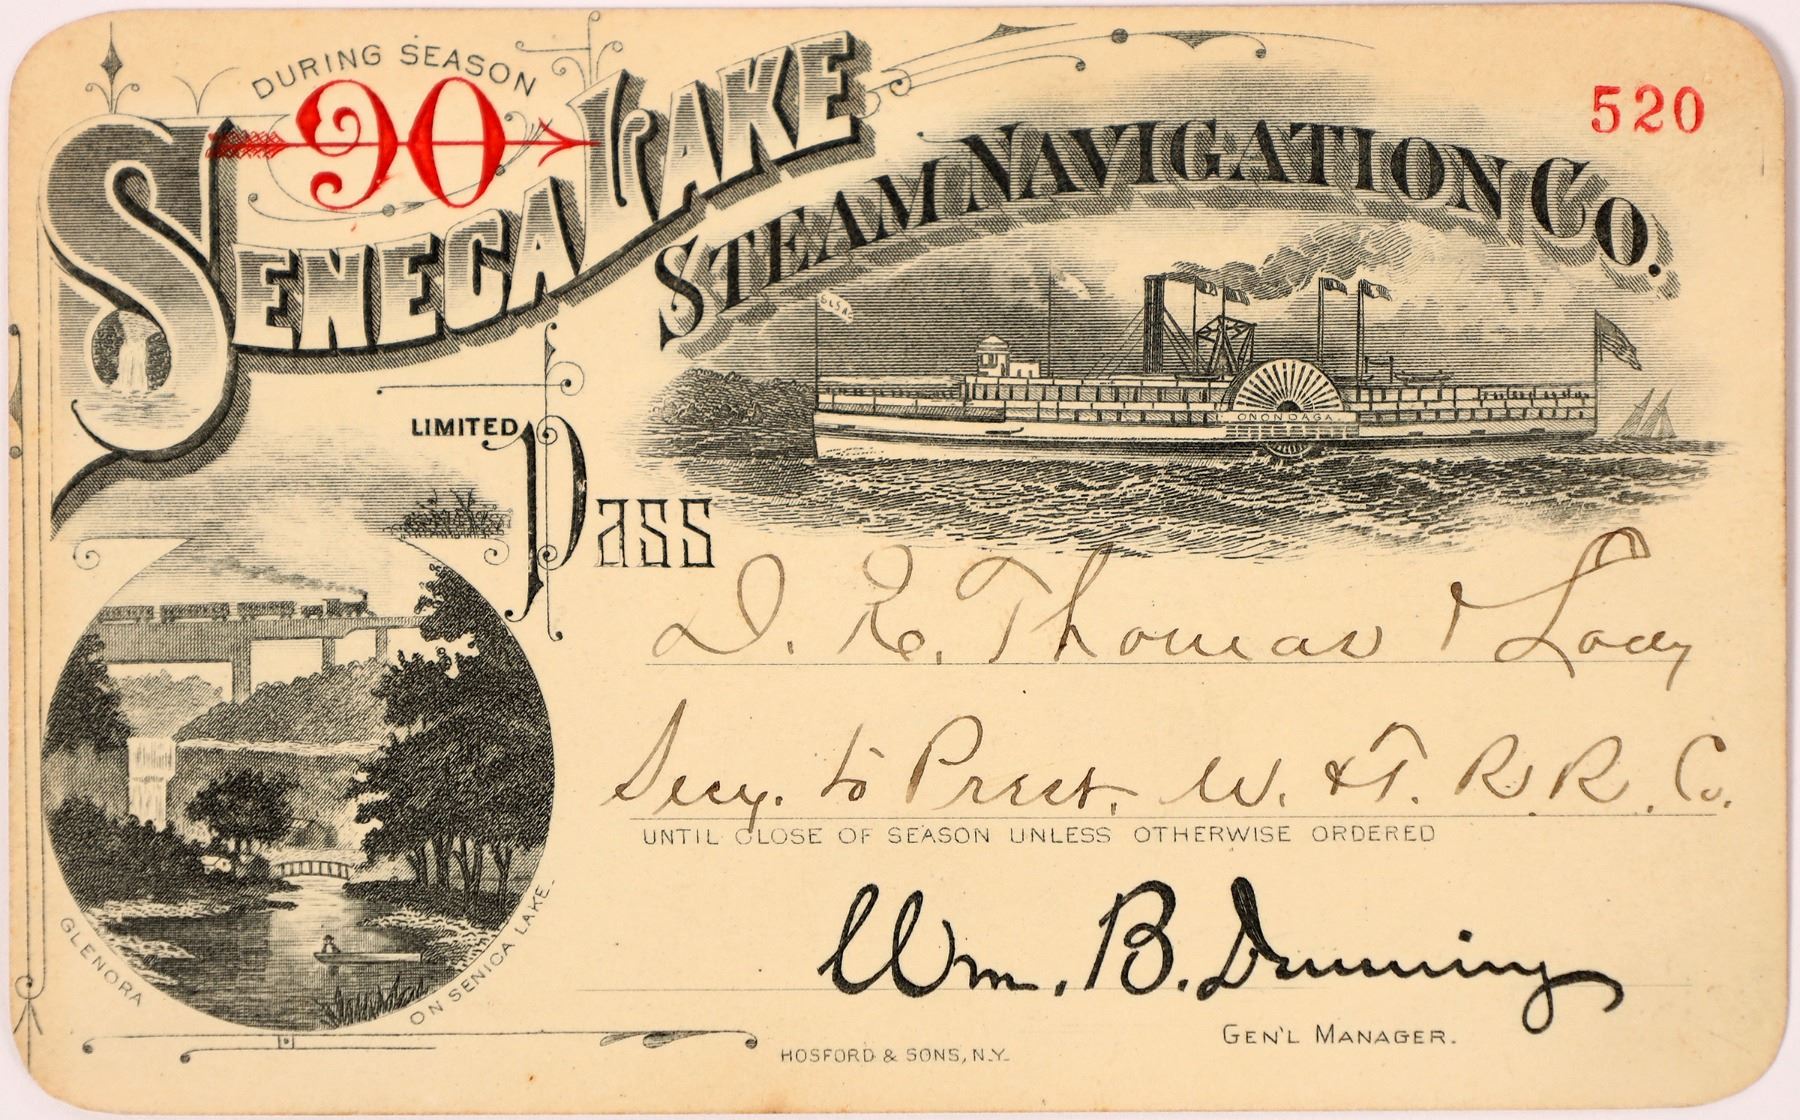 DURING SEASON
90
520
SENECA LAKE
STEAM NAVIGATION CO.
ONONDAGA.
LIMITED
Pass
D. R. Thomas & Lady
Secy. to Prest. W. & T. R. R. Co.
UNTIL CLOSE OF SEASON UNLESS OTHERWISE ORDERED
Wm. B. Dunning
GEN'L MANAGER.
GLENORA ON SENICA LAKE.
HOSFORD & SONS, N.Y.